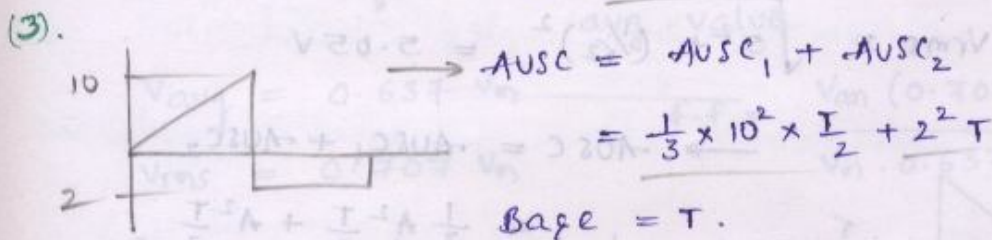 (3).
10
2
→ AUSC = AUSC₁ + AUSC₂
= 1/3 × 10² × T/2 + 2² T
Base = T.